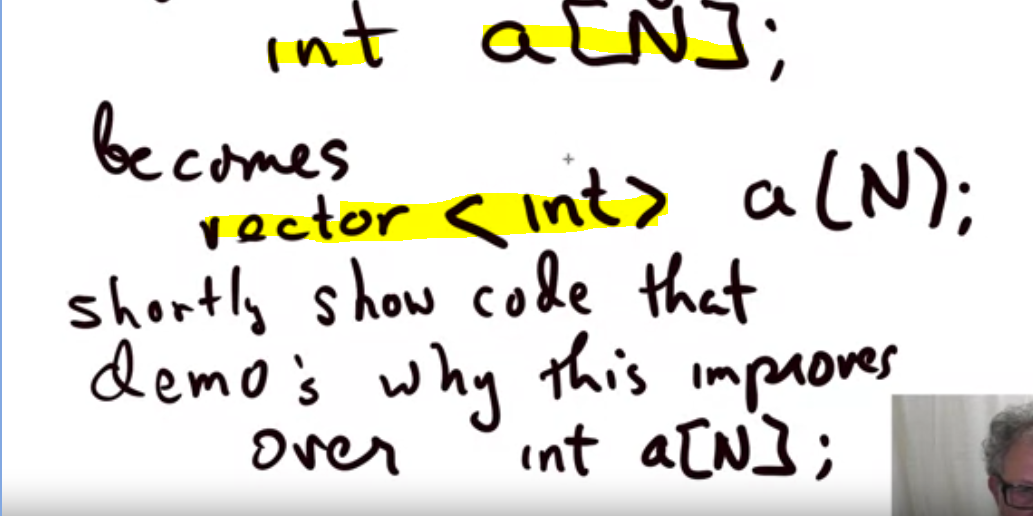 int a[N];
becomes
vector <int> a(N);
shortly show code that
demo's why this improves
over int a[N];